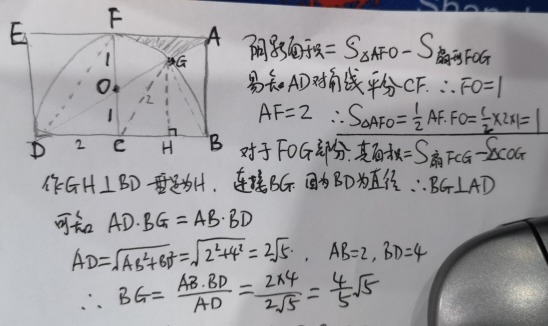 E
F
A
G
O
1
1
2
D
2
C
H
B
阴影面积 = S△AFO - S扇形FOG
易知AD对角线平分CF. ∴FO=1
AF=2 ∴S△AFO=½AF.FO=½×2×1=1
对于FOG部分, 其面积=S扇FCG-S△COG
作GH⊥BD 垂足为H. 连接BG 因为BD为直径 ∴BG⊥AD
可知 AD·BG = AB·BD
AD=√AB²+BD²=√2²+4²=2√5. AB=2, BD=4
∴ BG= AB·BD/AD = 2×4/2√5 = 4/5√5